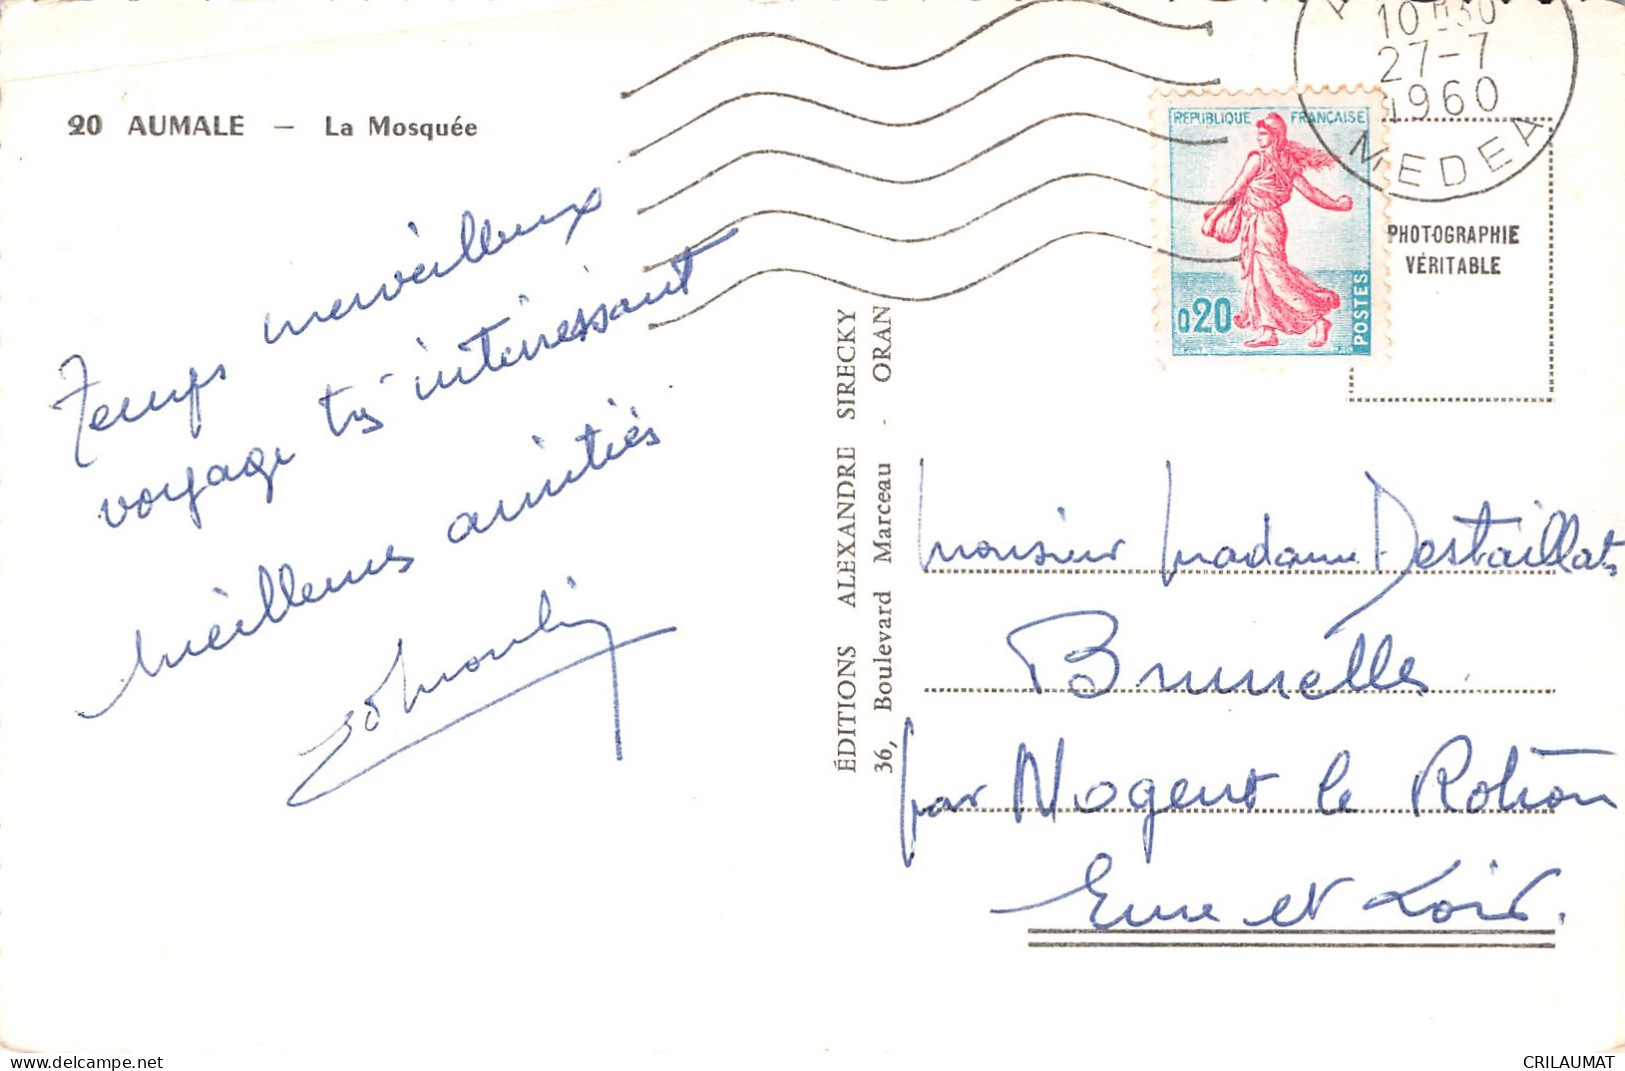 20 AUMALE — La Mosquée
Temps merveilleux
voyage très intéressant
Meilleures amitiés
ÉDITIONS ALEXANDRE SIRECKY
36, Boulevard Marceau - ORAN
10H30
27-7
1960
MEDEA
REPUBLIQUE FRANÇAISE
0,20
POSTES
PHOTOGRAPHIE
VÉRITABLE
Monsieur Madame Destaillats
Brunelles
par Nogent le Rotrou
Eure et Loir.
www.delcampe.net
CRILAUMAT